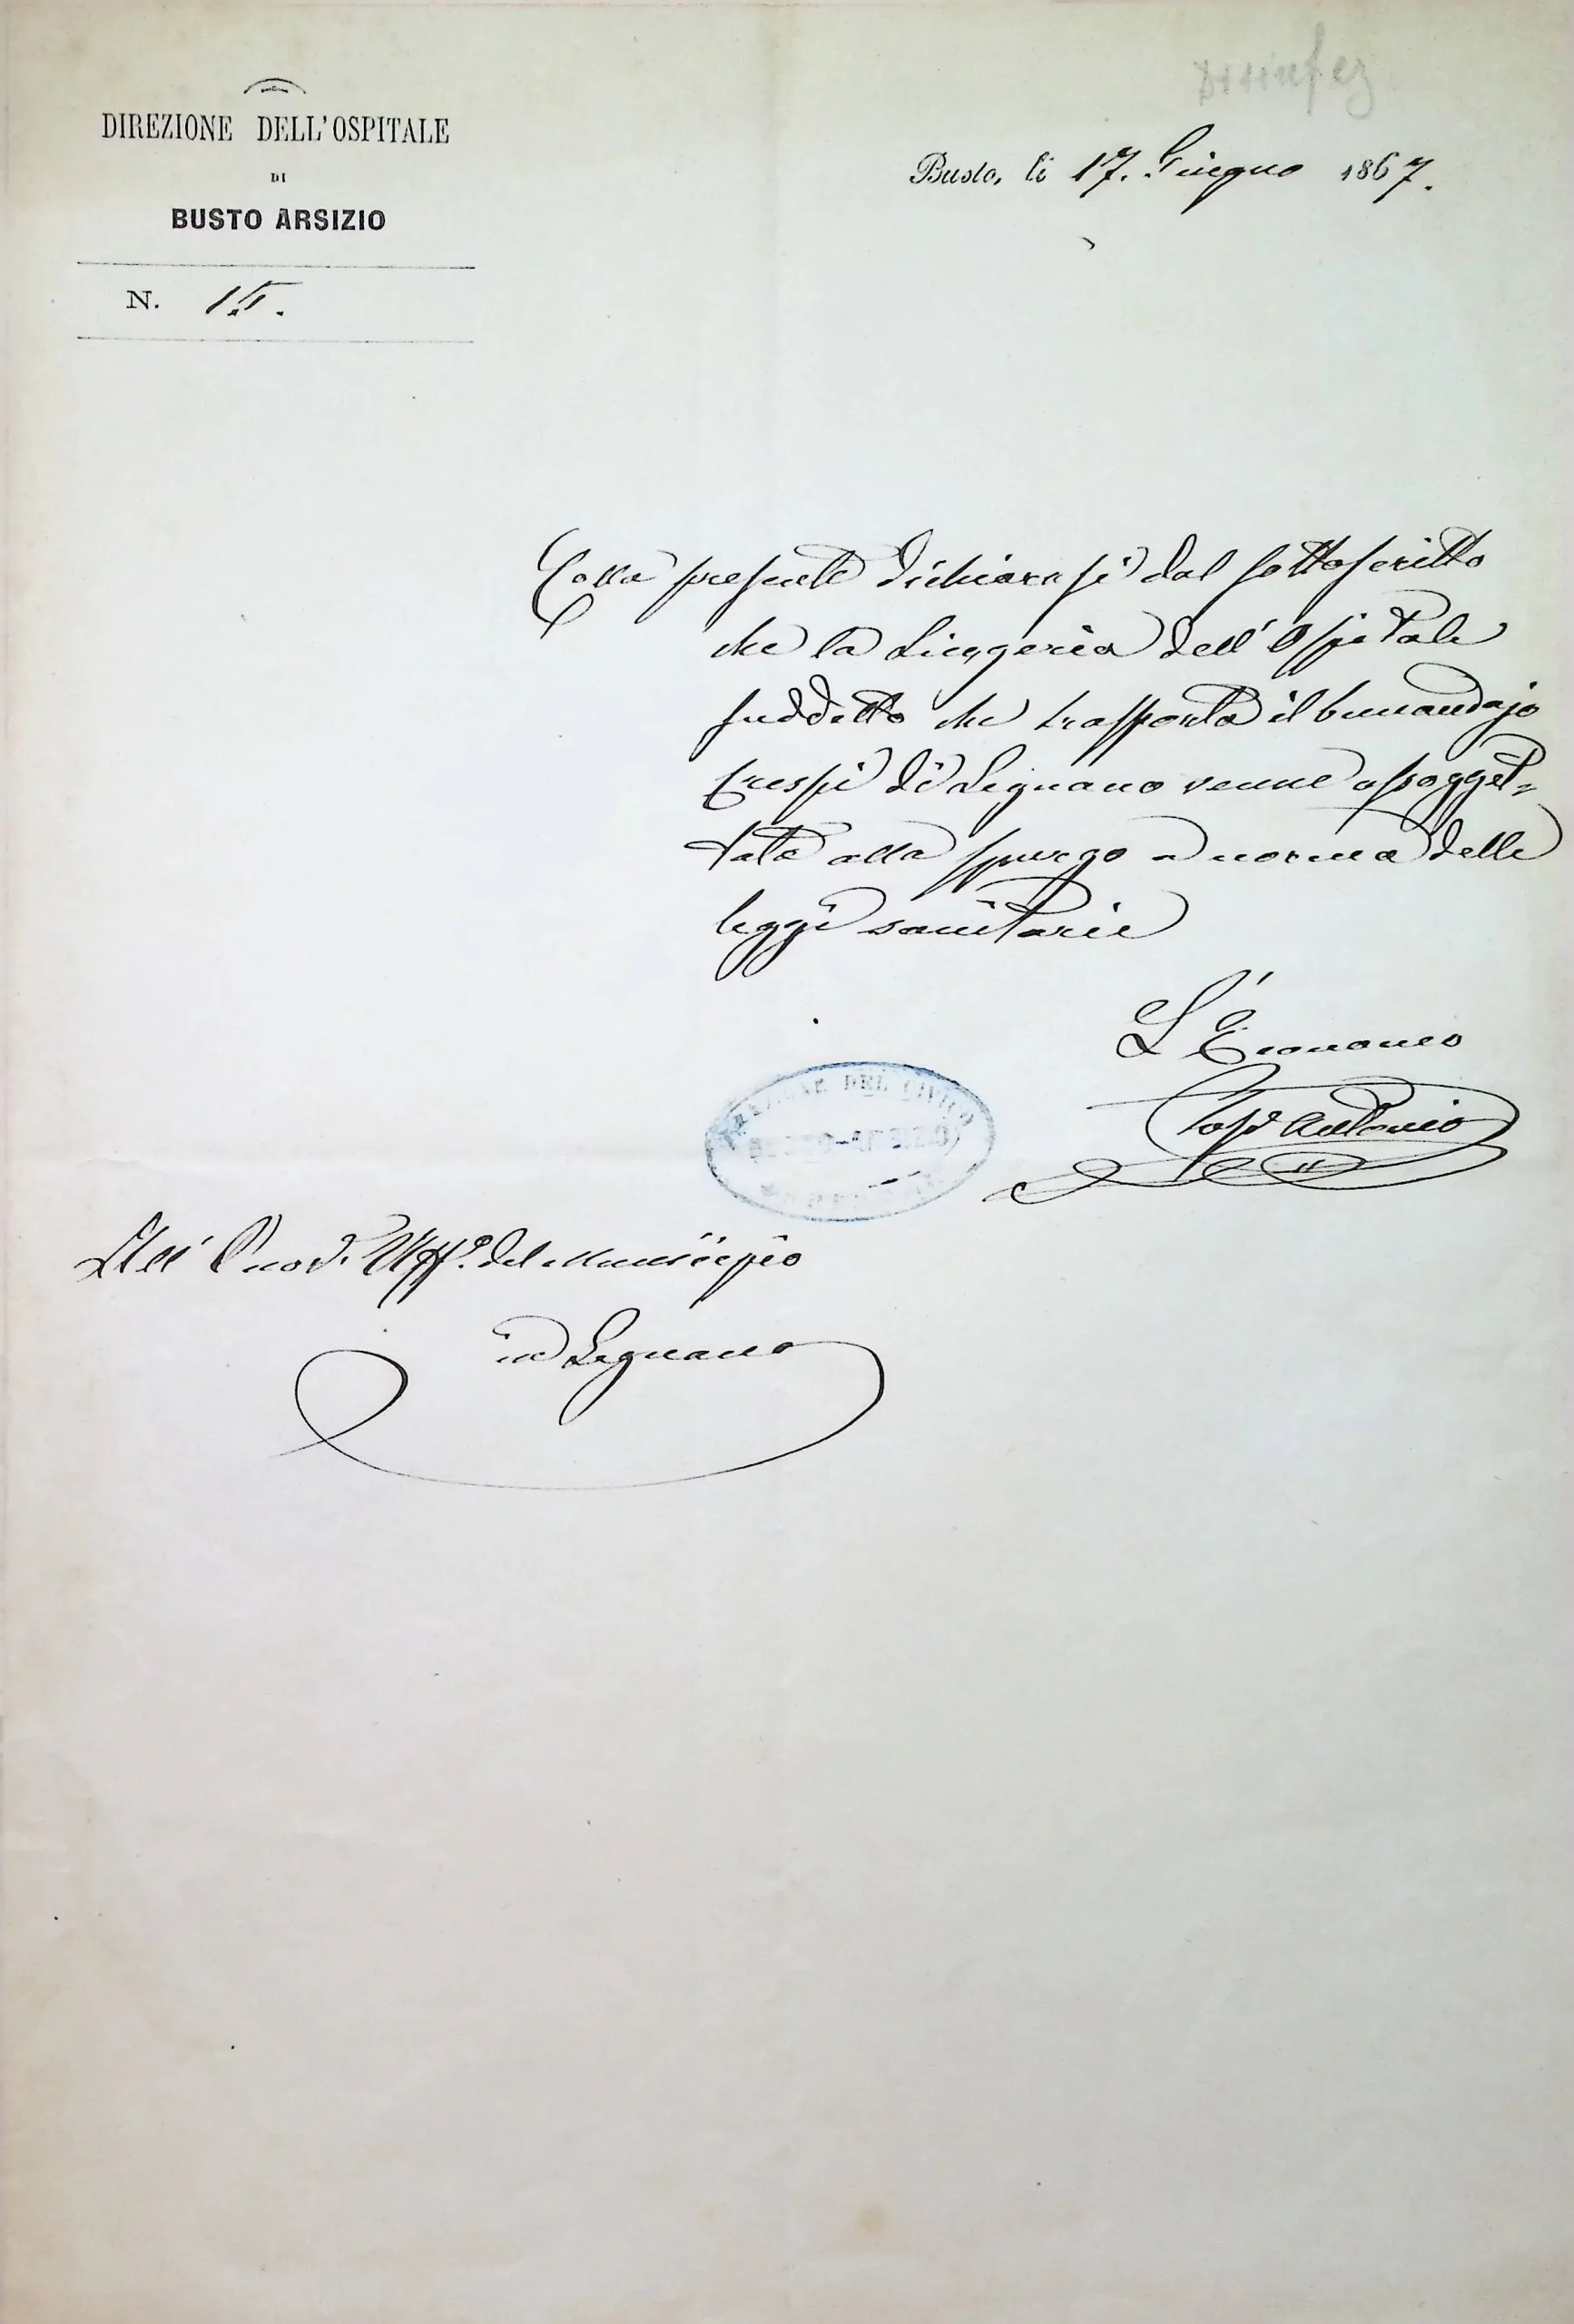 Disinfez
DIREZIONE DELL'OSPITALE
DI
BUSTO ARSIZIO
N. 15.
Busto, li 17. Giugno 1867.
Colla presente dichiarasi dal sottoscritto
che la Lingeria dell'Ospitale
suddetto che trasporta il bucandajo
Crespi di Legnano venne assogget=
tata allo spurgo a norma delle
leggi sanitarie
L'Economo
Antonio
DIREZIONE DEL CIVICO
BUSTO-ARSIZIO
All' Onod. Uff.o del Municipio
in Legnano